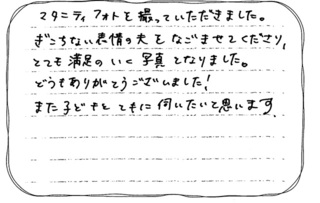 マタニティフォトを撮っていただきました。
ぎこちない表情の夫をなごませてくださり、
とても満足のいく写真となりました。
どうもありがとうございました!
また子どもとともに伺いたいと思います.